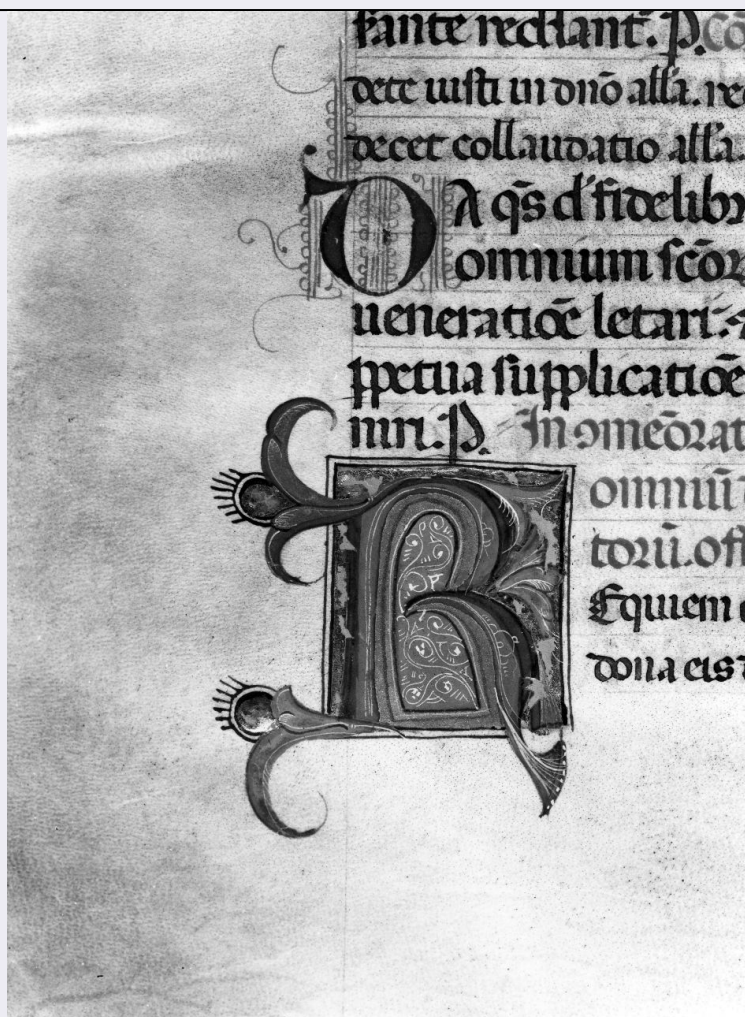 sante reclīant. P. Cō
dete iusti in dn̄o alła. rec
decet collaudatio alła.
DA q̄s d's fidelibꝫ
omnium sc̄oꝝ
ueneratiōe letari: ⁊
ꝑpetua supplicatiōe
niri. P. In ꝯmeōrat
omniū
toꝝū. off
REquiem e
dona eis d